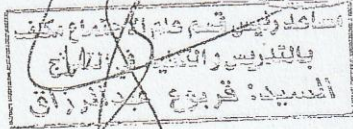 مساعد رئيس قسم علم الاجتماع مكلف
بالتدريس والتعليم في التدرج
السيد: قريوع عبد الرزاق